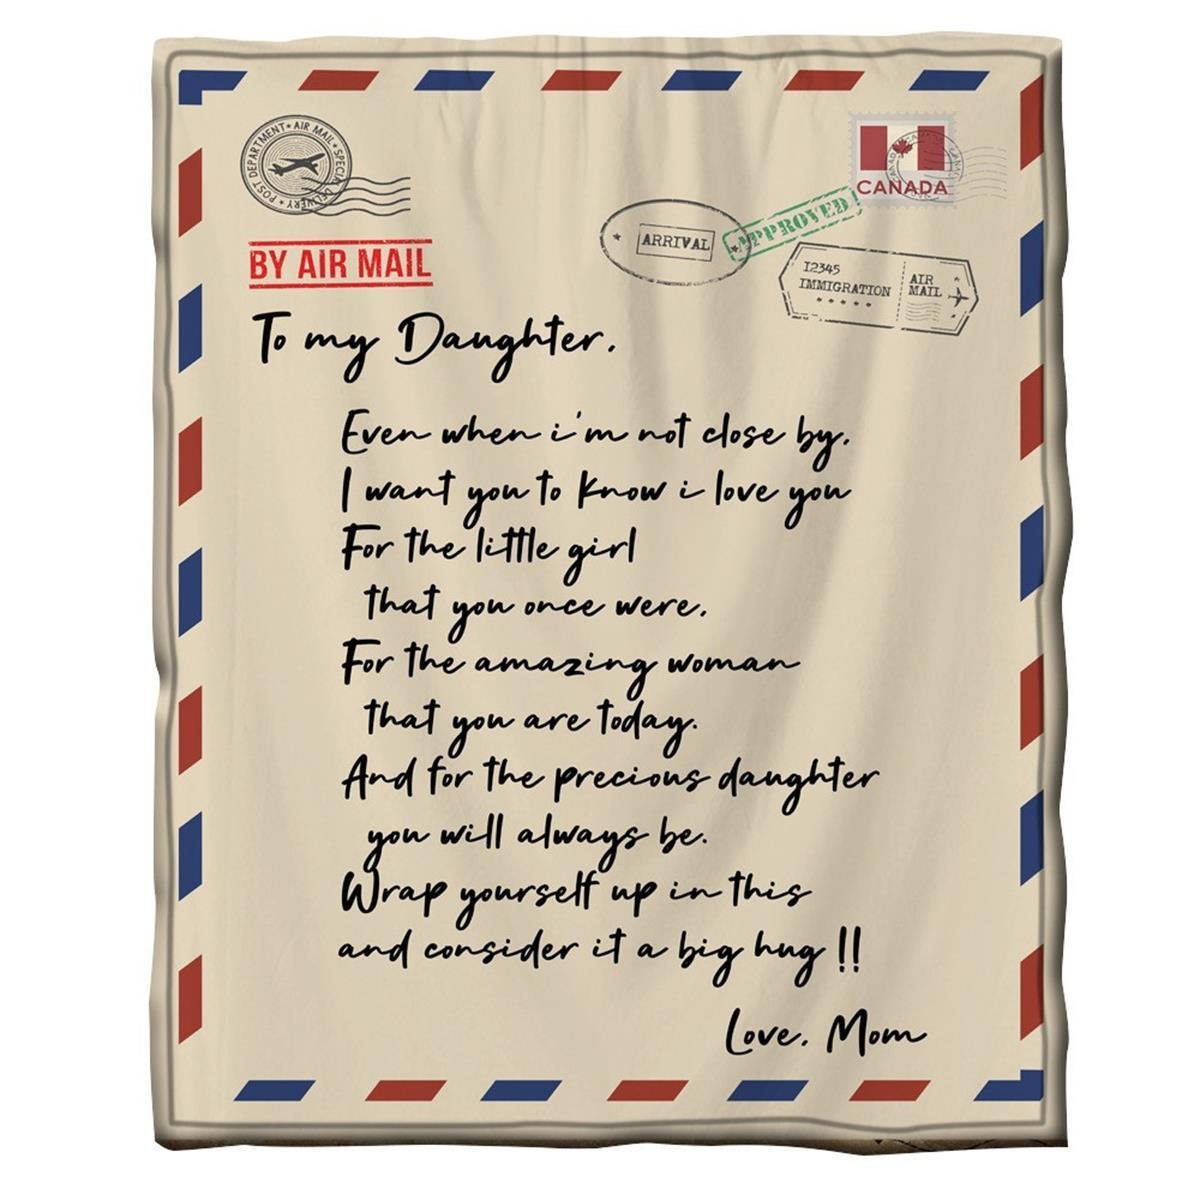 POST DEPARTMENT ★ AIR MAIL ★ SPECIAL DELIVERY ★
CANADA
CANADA
APPROVED
ARRIVAL
BY AIR MAIL
12345
IMMIGRATION
AIR
MAIL
To my Daughter,
Even when i'm not close by,
I want you to know i love you
For the little girl
that you once were,
For the amazing woman
that you are today.
And for the precious daughter
you will always be.
Wrap yourself up in this
and consider it a big hug !!
Love, Mom